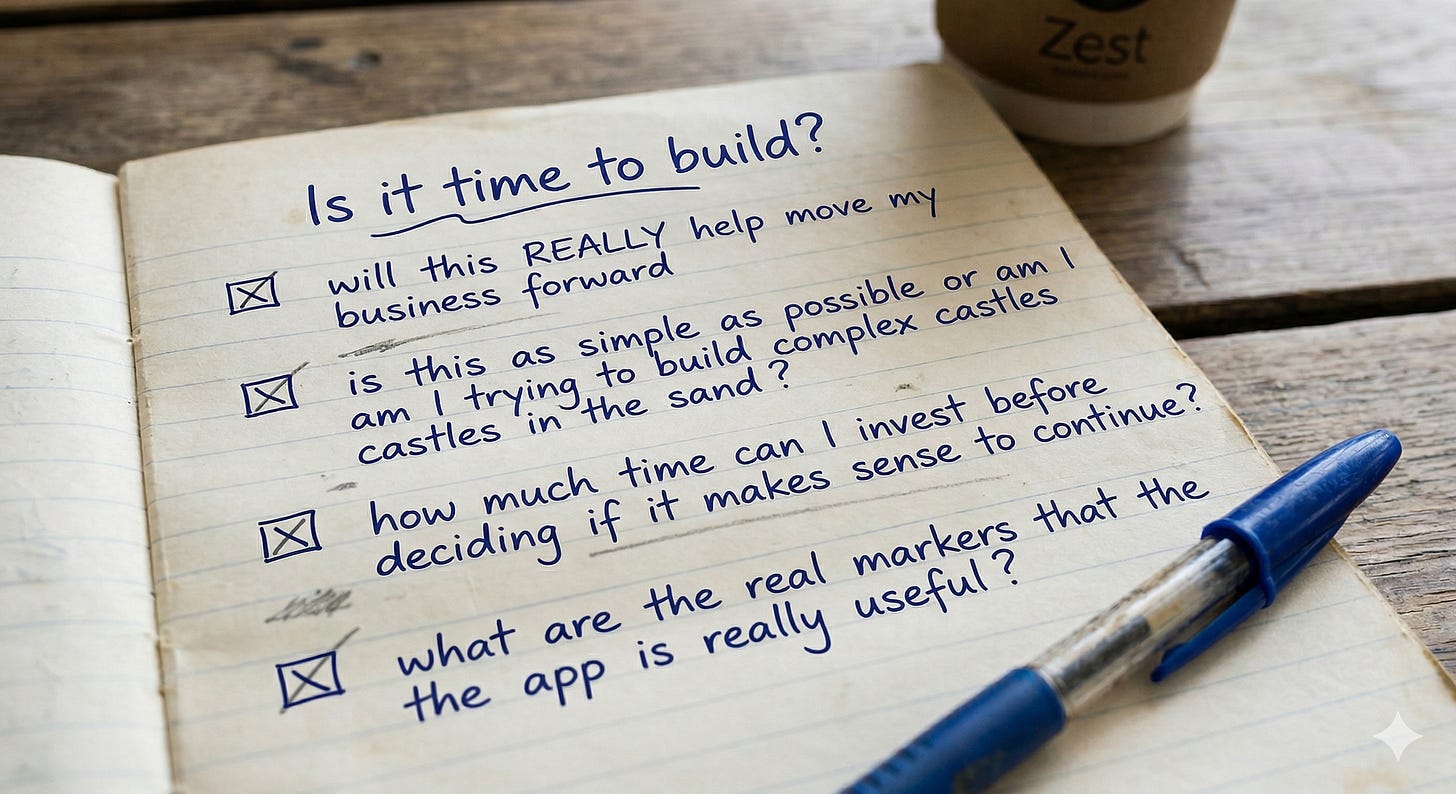 Zest
Is it time to build?
will this REALLY help move my
business forward
is this as simple as possible or am I
am I trying to build complex castles
castles in the sand?
how much time can I invest before
deciding if it makes sense to continue?
what are the real markers that the
the app is really useful?